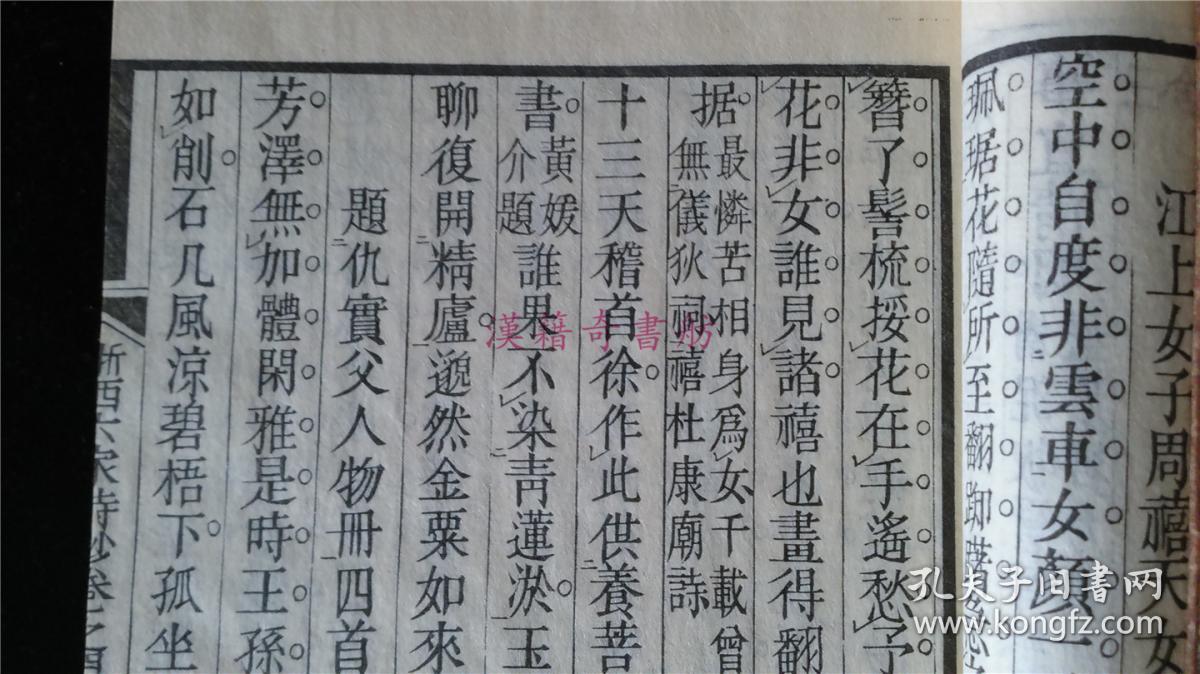 江上女子周禧天女
空中自度非雲車女顏
珮琚花隨所至翻踟躇
簪了髻梳挼花在手遙愁予
花非女誰見諸禧也畫得翻
据最憐苦相身爲女千載曾
無儀狄祠禧杜康廟詩
十三天稽首徐作此供養菩
書黃媛
介題誰果不染青蓮淤玉
聊復開精廬邈然金粟如來
題仇實父人物冊四首
芳澤無加體閑雅是時王孫
如削石几風涼碧梧下孤坐
浙西六家詩鈔卷之四
漢籍奇書舫
孔夫子旧书网
www.kongfz.com